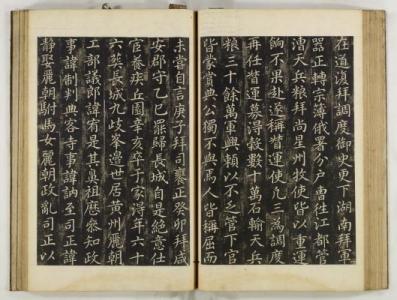 在道復拜調度御史更下湖南拜軍
器正轉宗簿俄署分戶曹往江都管
漕天兵粮拜尚星州牧使皆以重運
餉不果赴遂稱督運使凡三為調度
再任督運募得穀數十萬石輸天兵
粮三十餘萬軍興賴以不乏管下官
皆蒙賞典公獨不與焉人皆稱屈而
未嘗自言庚子拜司饔正癸卯拜咸
安郡守乙巳罷歸長城自是絕意仕
宦養疾丘園辛亥卒于家得年六十
六葬長城九歧峯邊世居黃州麗朝
工部議郎諱有是其鼻祖歷叅知政
事諱制判典客寺事諱訥至司正諱
靜娶麗朝駙馬女麗朝政亂司正以